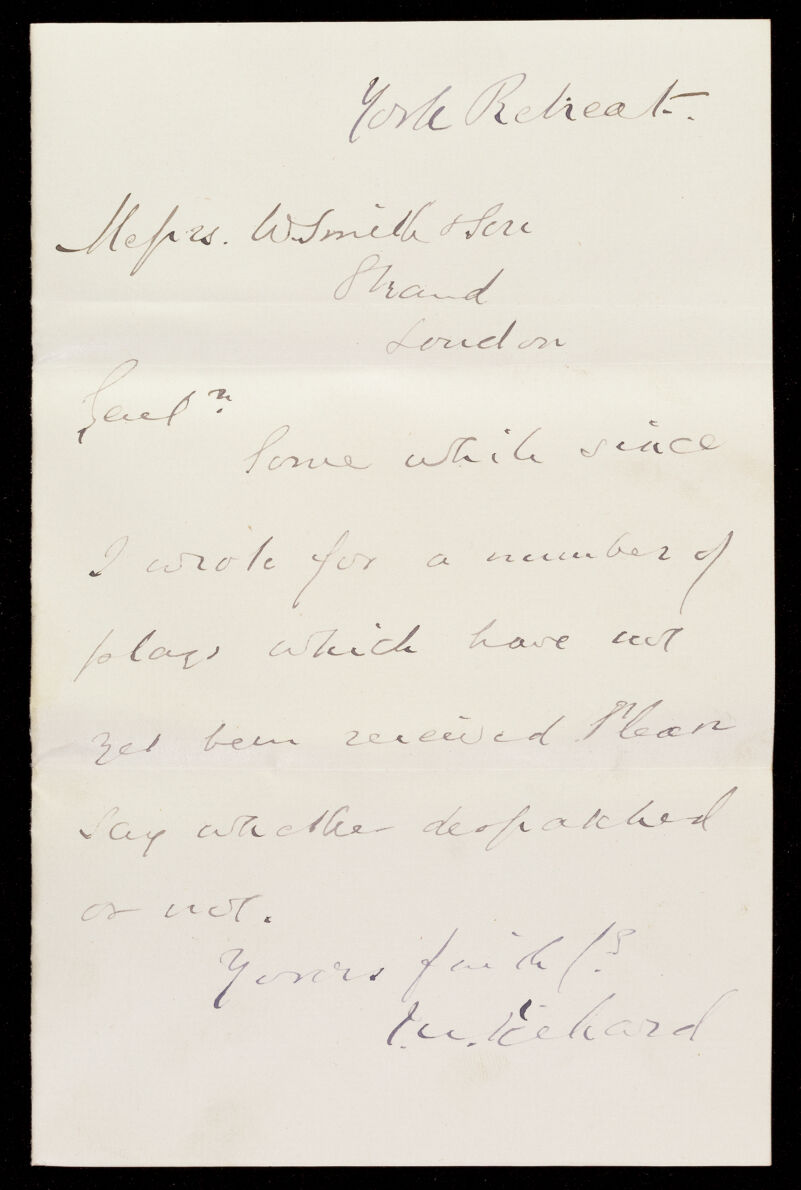 York Retreat.
Messrs. W Smith & Son
Strand
London
Gentn
Some while since
I wrote for a number of
plays which have not
yet been received Please
say whether despatched
or not.
Yours faithfy